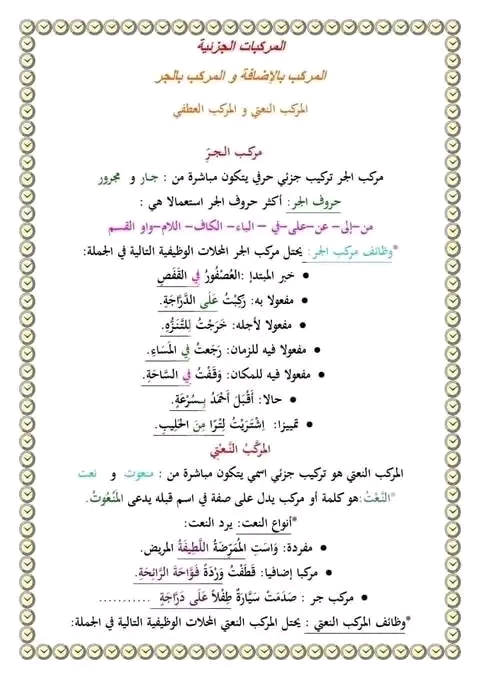 المركبات الجزئية
المركب بالإضافة و المركب بالجر
المركب النعتي و المركب العطفي
مركب الجرّ
مركب الجر تركيب جزئي حرفي يتكون مباشرة من : جار و مجرور
حروف الجر: أكثر حروف الجر استعمالا هي :
من–إلى– عن–على–في – الباء– الكاف– اللام–واو القسم
*وظائف مركب الجر: يحتل مركب الجر المحلات الوظيفية التالية في الجملة:
• خبر المبتدإ :العُصْفُورُ فِي القَفَصِ
• مفعولا به: رَكِبْتُ عَلَى الدَّرَّاجَةِ.
• مفعولا لأجله: خَرَجْتُ لِلتَّنَزُّهِ.
• مفعولا فيه للزمان: رَجَعتُ فِي المَسَاءِ.
• مفعولا فيه للمكان: وَقَفْتُ فِي السَّاحَةِ.
• حالا: أَقْبَلَ أَحْمَدُ بِسُرْعَةٍ.
• تمييزا: اِشْتَرَيْتُ لِتْرًا مِنَ الحَلِيبِ.
المركّبُ النّعْتِي
المركب النعتي هو تركيب جزئي اسمي يتكون مباشرة من : منعوت و نعت
*النَّعْتُ:هو كلمة أو مركب يدل على صفة في اسم قبله يدعى المَنْعُوتُ.
*أنواع النعت: يرد النعت:
• مفردة: وَاسَتِ المُمَرِّضَةُ اللَّطِيفَةُ المريض.
• مركبا إضافيا: قَطَفْتُ وَرْدَةً فَوَّاحَةَ الرَّائِحَةِ.
• مركب جر : صَدَمَتْ سَيَّارَةٌ طِفْلاً عَلَى دَرَّاجَةٍ ...........
*وظائف المركب النعتي : يحتل المركب النعتي المحلات الوظيفية التالية في الجملة: